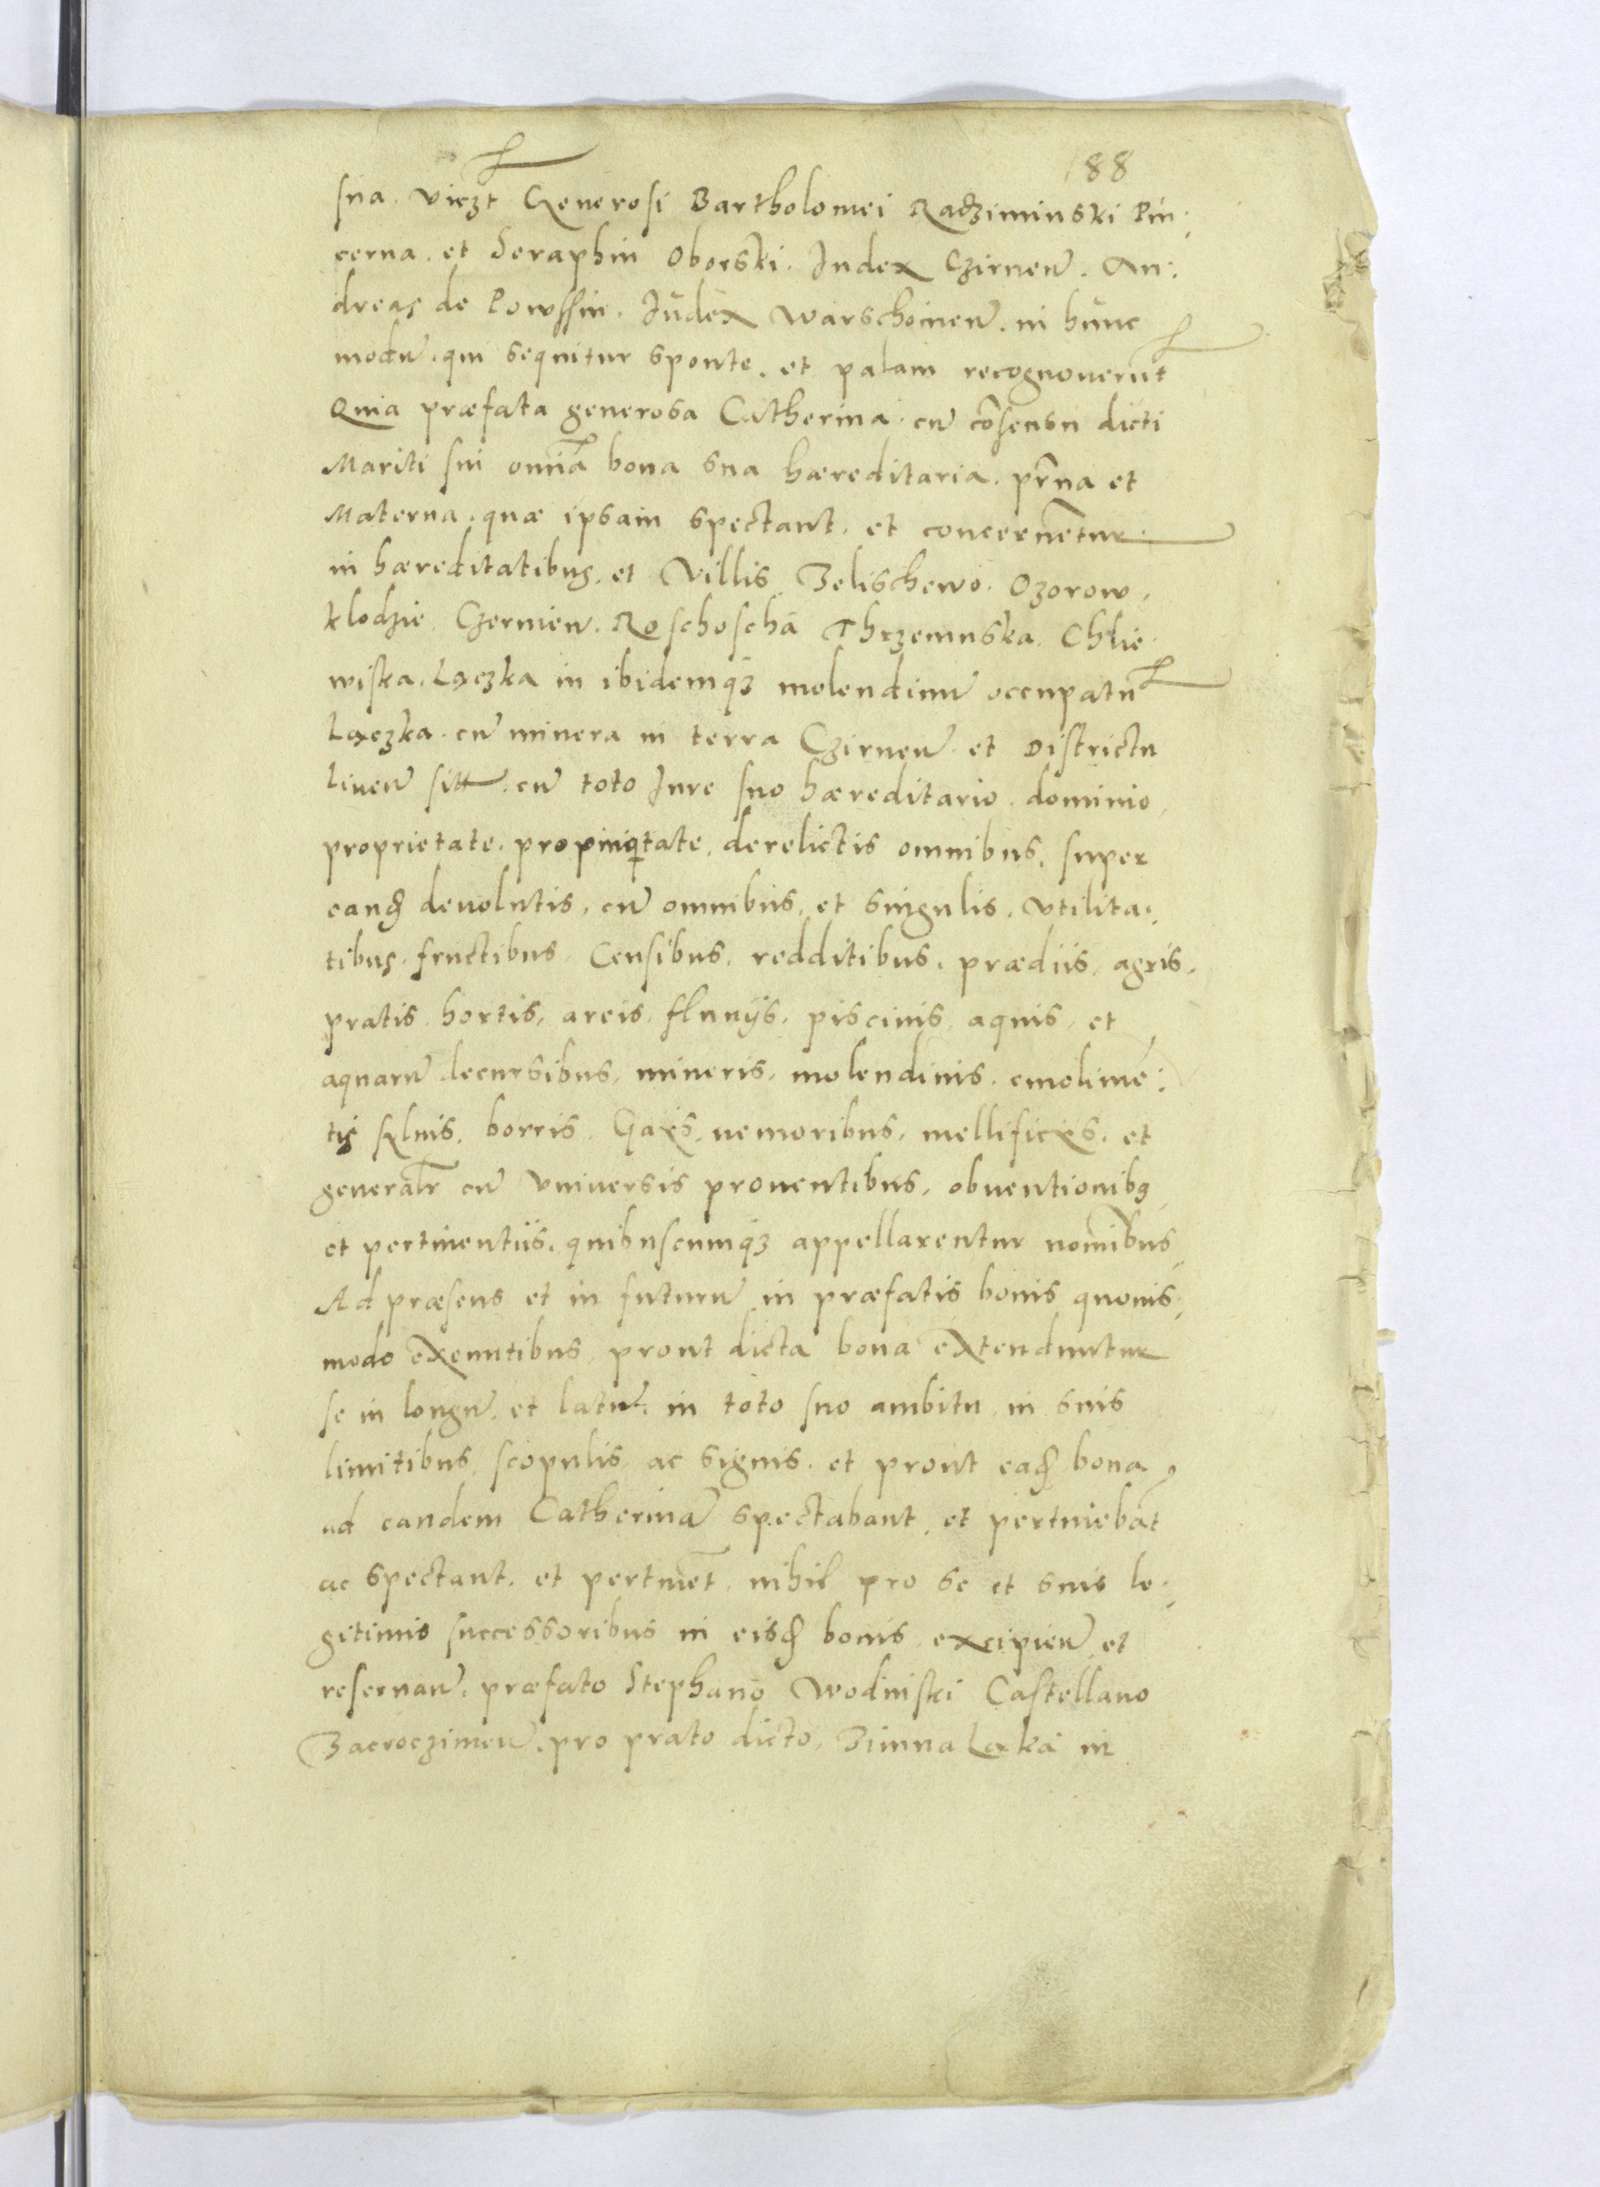 188
sua. viczt Generosi Bartholomei Radziminski Pin:
cerna. et Seraphin Oborski. Iudex Czirneñ. An:
dreas de Powssin. Iudex Warschoineñ. in hunc
modũ. qui sequitur sponte. et palam recognoverũt
Quia præfata generosa Catherina. cũ cõsensu dicti
Mariti sui omĩa bona sua hæreditaria. pr̃na et
Materna. quæ ipsam spectant. et concernẽtur.
in hæreditatibus. et Villis Zelischewo. Ozorow.
klodzie. Czernieñ. Roschoscha Thrzemuska. Chlie.
wiska. Lączka in ibidemqz molendinũ occupatũ
Lączka. cũ minera in terra Czirneñ. et Districtu
Liveñ sitt. cũ toto Iure suo hæreditario. dominio.
proprietate. propinqtate. derelictis omnibus. super
eand devolutis. cũ omnibus. et singulis. Vtilita:
tibus. fructibus. Censibus. redditibus. prædiis. agris.
pratis. hortis. areis. fluuijs. piscinis. aquis. et
aquarũ decursibus. mineris. molendinis. emolimẽ:
tis sylvis. borris. Gays. nemoribus. mellificys. et
generalr̃ cũ Vniversis proventibus. obventionibus
et pertinentiis. quibuscumqz appellarentur nomĩbus
Ad præsens et in futurũ in præfatis bonis quovis:
modo exeuntibus. prout dicta bona extenduntur
se in longũ. et latũ. in toto suo ambitu in suis
limitibus. scopulis ac signis. et prout ead bona
ad eandem Catherinã spectabant. et pertinebãt
ac spectant. et pertinẽt. nihil pro se et suis le:
gitimis successoribus in eisd bonis excipieñ et
reservañ. præfato Stephano Wodinski Castellano
Zacroczimeñ. pro prato dicto. Zimna Ląka in